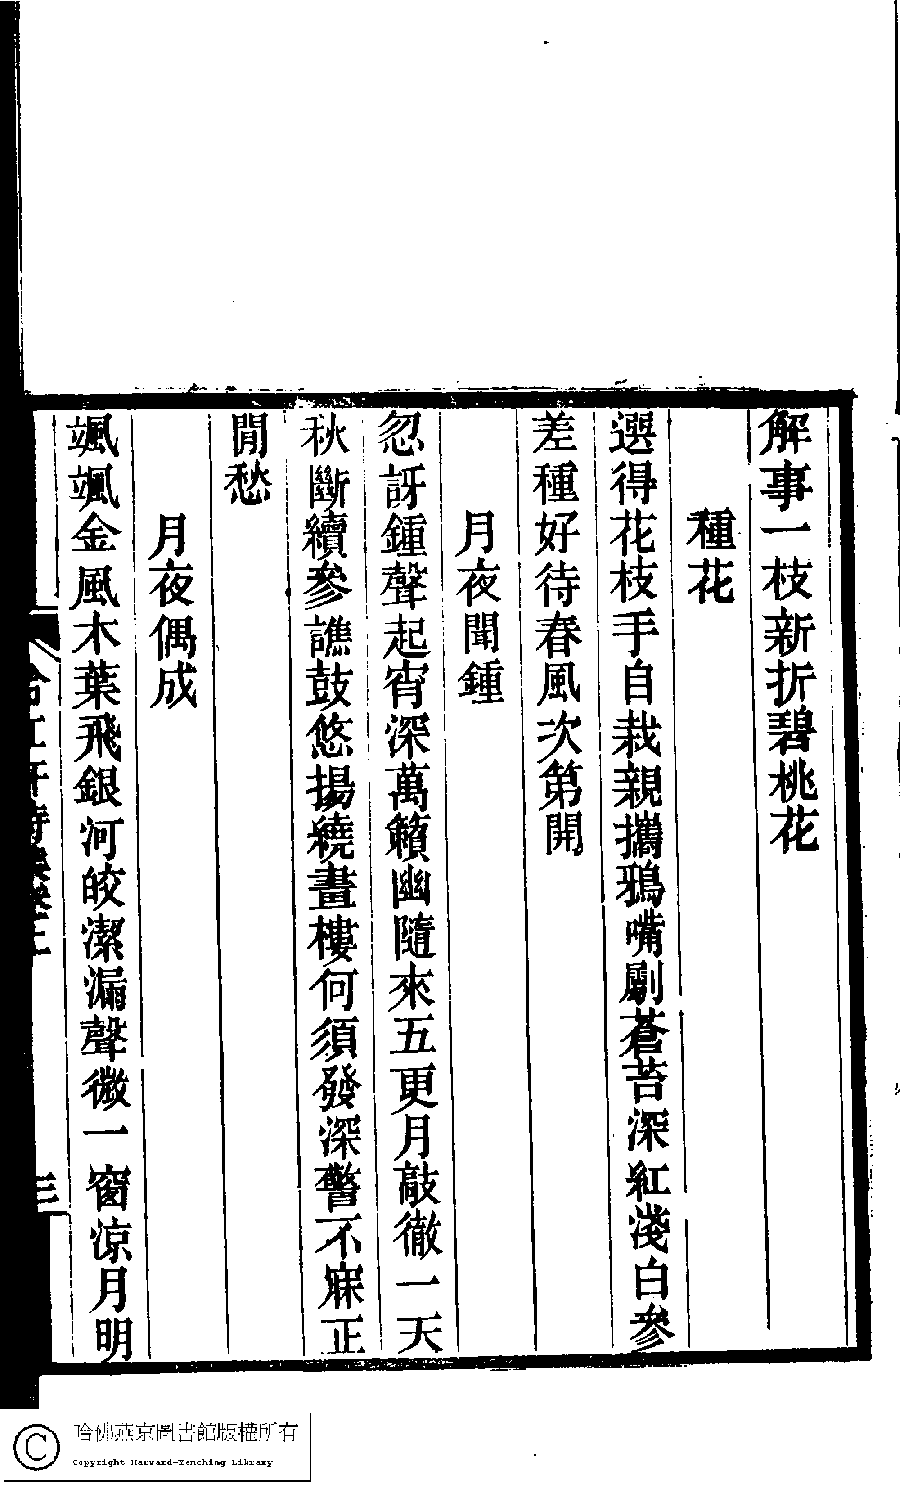 解事一枝新折碧桃花
種花
選得花枝手自栽親攜鴉嘴劚蒼苔深紅淺白參
差種好待春風次第開
月夜聞鍾
忽訝鍾聲起宵深萬籟幽隨來五更月敲徹一天
秋斷續參譙鼓悠揚繞畫樓何須發深警不寐正
閒愁
月夜偶成
颯颯金風木葉飛銀河皎潔漏聲微一窗涼月明
三
哈佛燕京圖書館版權所有
Copyright Harvard-Yenching Library